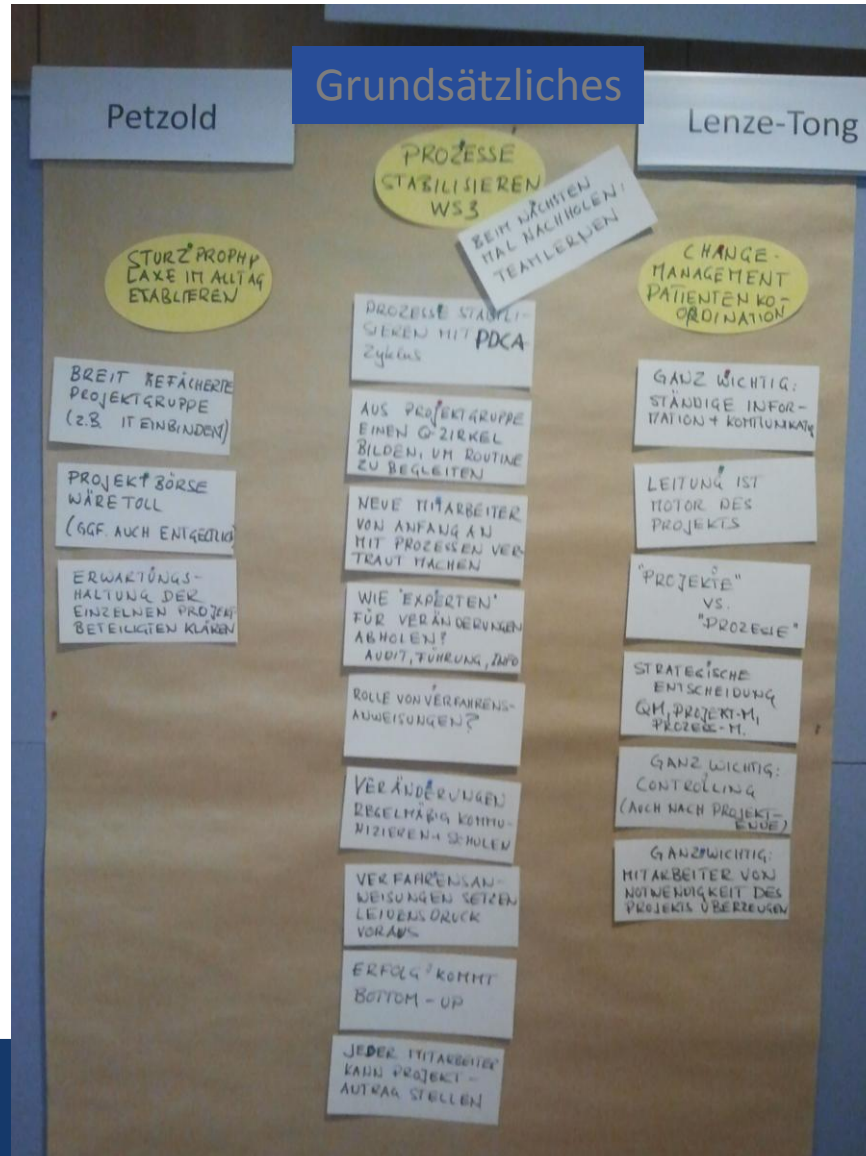 Petzold
Grundsätzliches
Lenze-Tong
STURZPROPHY
LAXE IM ALLTAG
ETABLIEREN
BREIT GEFÄCHERTE
PROJEKTGRUPPE
(z.B. IT EINBINDEN)
PROJEKTBÖRSE
WÄRE TOLL
(GGF. AUCH ENTGELTLICH)
ERWARTUNGS-
HALTUNG DER
EINZELNEN PROJEKT
BETEILIGTEN KLÄREN
PROZESSE
STABILISIEREN
WS3
BEIM NÄCHSTEN
MAL NACHHOLEN:
TEAMLERNEN
PROZESSE STABILI-
SIEREN MIT PDCA
Zyklus
AUS PROJEKTGRUPPE
EINEN Q-ZIRKEL
BILDEN, UM ROUTINE
ZU BEGLEITEN
NEUE MITARBEITER
VON ANFANG AN
MIT PROZESSEN VER-
TRAUT MACHEN
WIE "EXPERTEN"
FÜR VERÄNDERUNGEN
ABHOLEN?
AUDIT, FÜHRUNG, INFO
ROLLE VON VERFAHRENS-
ANWEISUNGEN?
VERÄNDERUNGEN
REGELMÄßIG KOMMU-
NIZIEREN + SCHULEN
VERFAHRENSAN-
WEISUNGEN SETZEN
LEIDENSDRUCK
VORAUS
ERFOLG KOMMT
BOTTOM-UP
JEDER MITARBEITER
KANN PROJEKT-
AUTRAG STELLEN
CHANGE-
MANAGEMENT
PATIENTEN KO-
ORDINATION
GANZ WICHTIG:
STÄNDIGE INFOR-
MATION + KOMMUNIKATION
LEITUNG IST
MOTOR DES
PROJEKTS
"PROJEKTE"
VS.
"PROZESSE"
STRATEGISCHE
ENTSCHEIDUNG
QM, PROJEKT-M,
PROZESS-M.
GANZ WICHTIG:
CONTROLLING
(AUCH NACH PROJEKT-
ENDE)
GANZ WICHTIG:
MITARBEITER VON
NOTWENDIGKEIT DES
PROJEKTS ÜBERZEUGEN